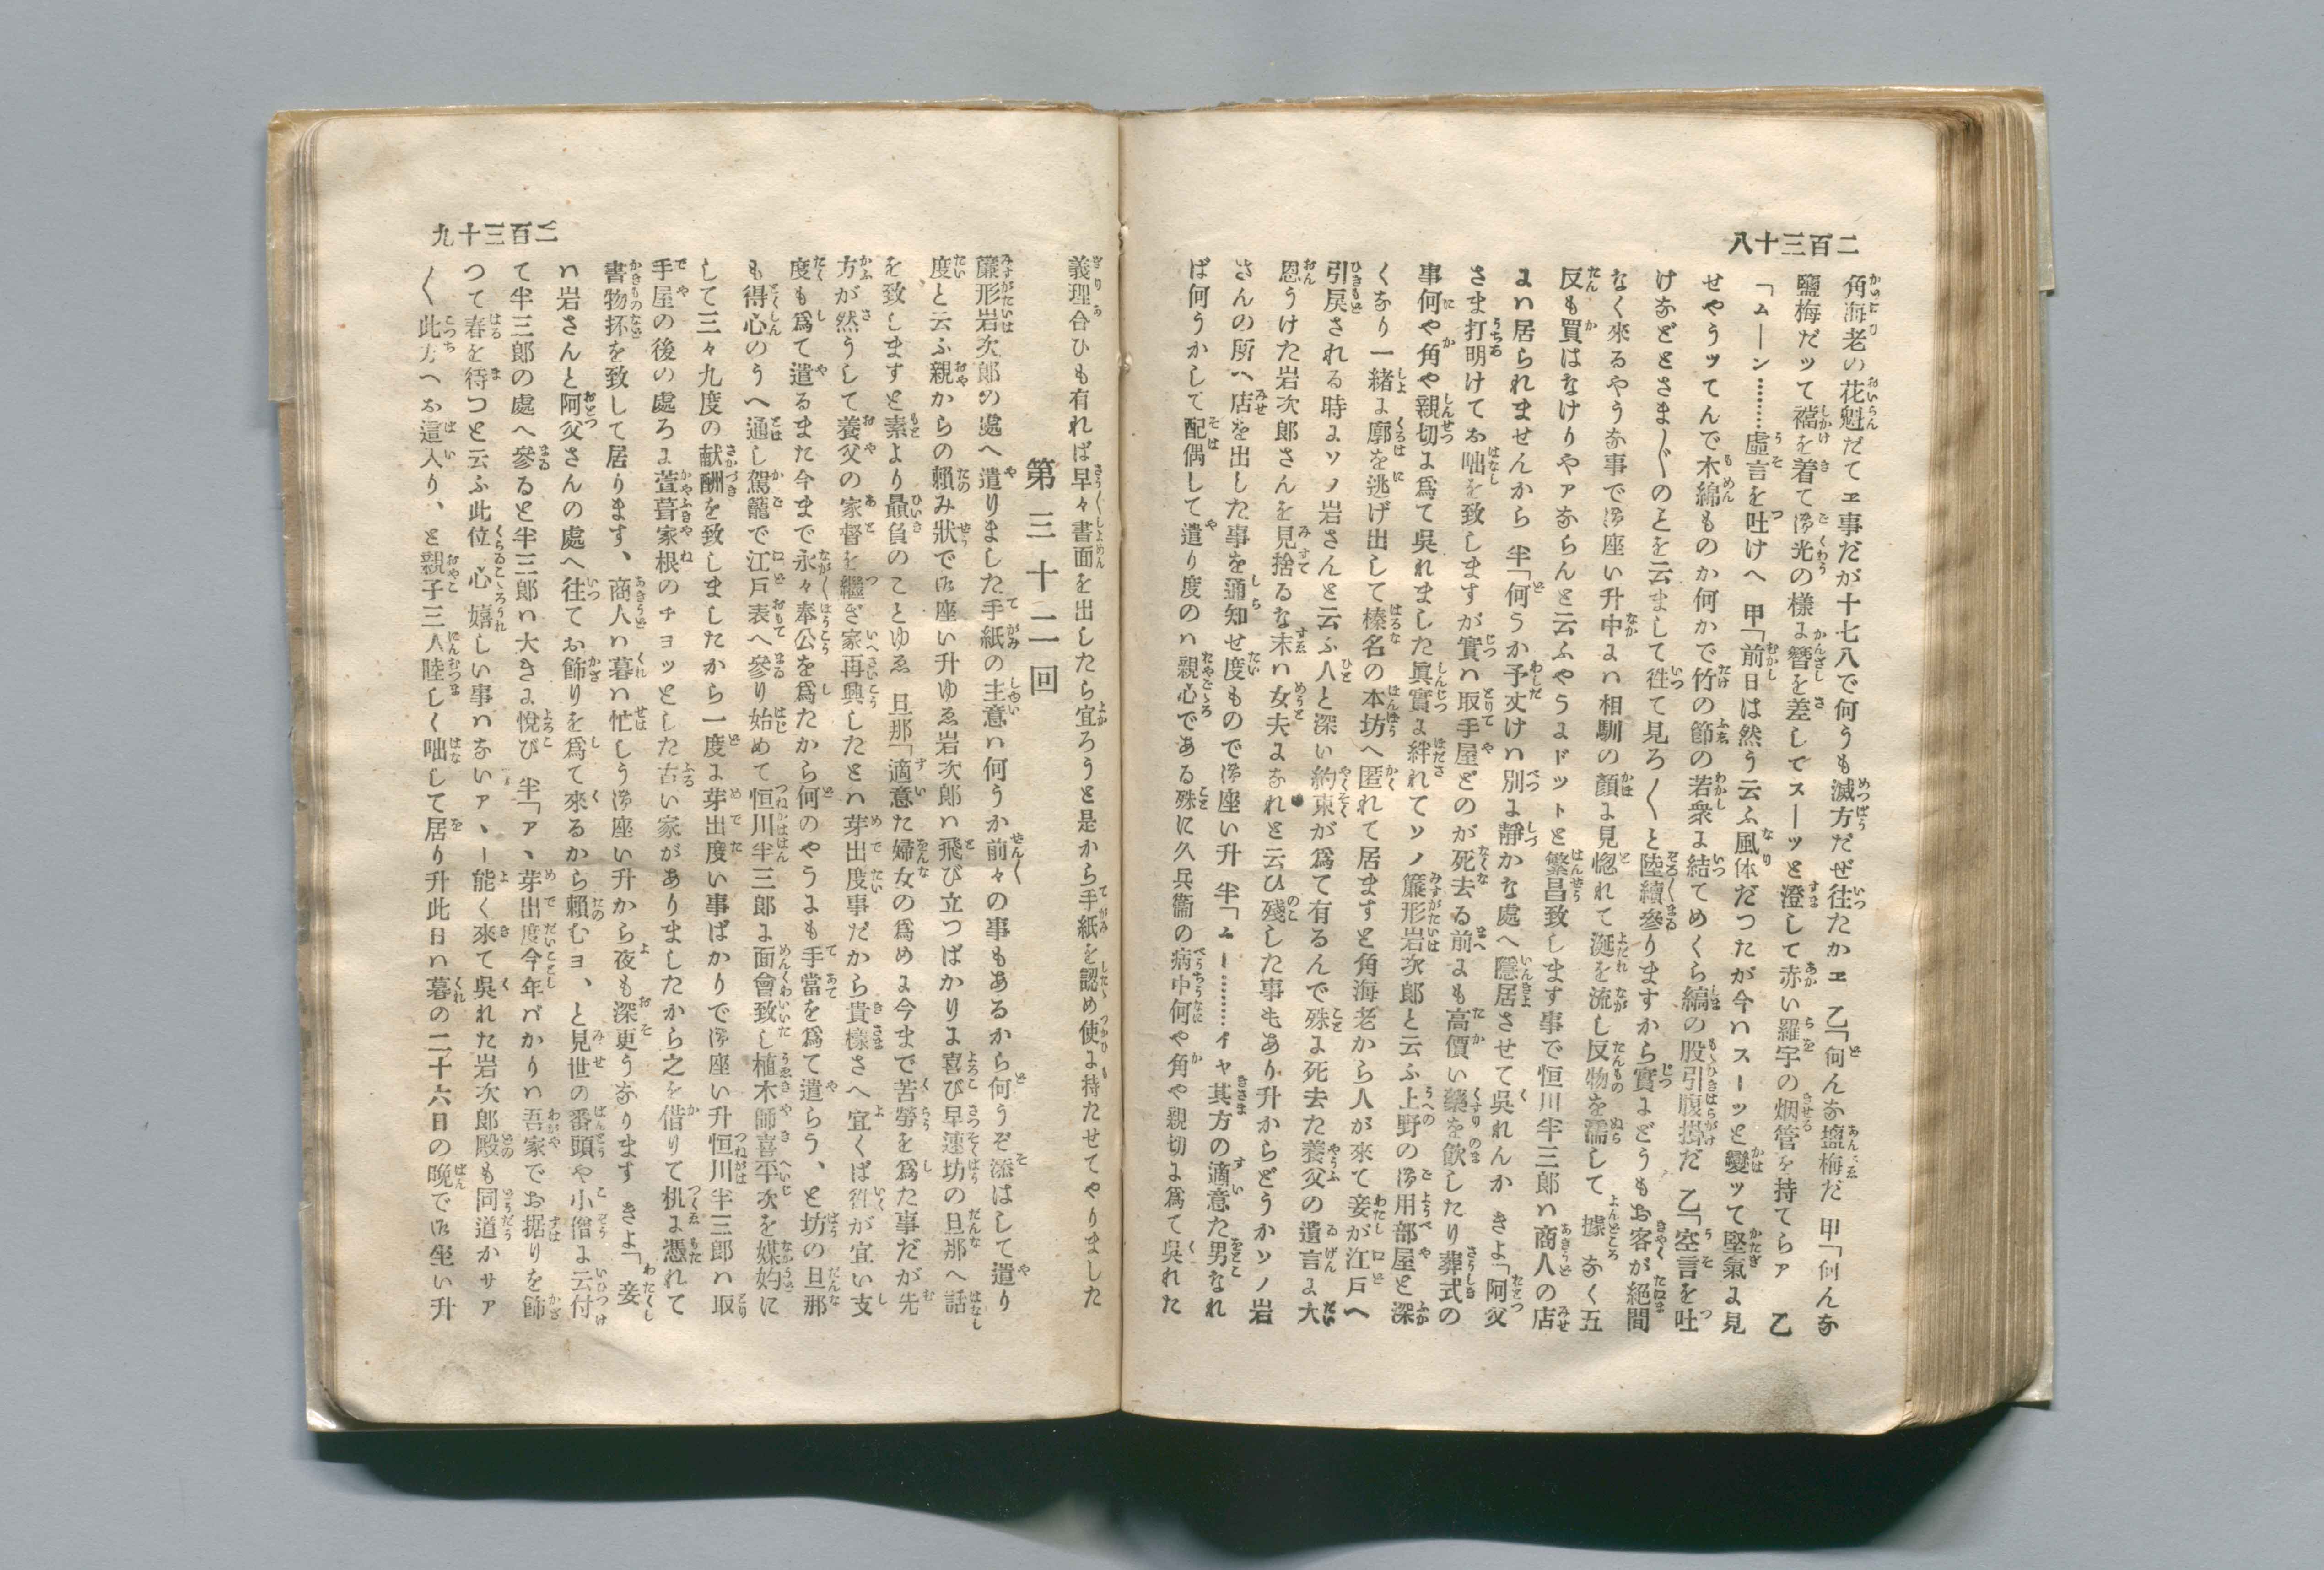 二百三十八
角海老の花魁だてヱ事だが十七八で何うも滅方だぜ往たかヱ 乙「何んな塩梅だ 甲「何んな
鹽梅だッて襠を着て御光の樣に簪を差してスーッと澄して赤い羅宇の烟管を持てらァ 乙
「ムーン………虛言を吐けへ 甲「前日は然う云ふ風体だつたが今ハスーッと變ッて堅氣に見
せやうッてんで木綿ものか何かで竹の節の若衆に結てめくら縞の股引腹掛だ 乙「空言を吐
けなどとさま〴〵のとを云まして徃て見ろ〳〵と陸續參りますから實にどうもお客が絕間
なく來るやうな事で御座い升中にハ相馴の顏に見惚れて涎を流し反物を濡して據なく五
反も買はなけりやァならんと云ふやうにドットと繁昌致します事で恒川半三郎ハ商人の店
にハ居られませんから 半「何うか予丈けハ別に靜かな處へ隱居させて吳れんか きよ「阿父
さま打明けてお咄を致しますが實ハ取手屋どのが死去る前にも高價い藥を飮したり葬式の
事何や角や親切に爲て吳れました眞實に絆れてソノ簾形岩次郎と云ふ上野の御用部屋と深
くなり一緖に廓を逃げ出して榛名の本坊へ匿れて居ますと角海老から人が來て妾が江戸へ
引戾される時にソノ岩さんと云ふ人と深い約束が爲て有るんで殊に死去た養父の遺言に大
恩うけた岩次郎さんを見捨るな末ハ女夫になれと云ひ殘した事もあり升からどうかソノ岩
さんの所へ店を出した事を通知せ度いもので御座い升 半「ムー………イヤ其方の適意た男なれ
ば何うかして配偶して遣り度のハ親心である殊に久兵衞の病中何や角や親切に爲て吳れた
二百三十九
義理合ひも有れば早々書面を出したら宜ろうと是から手紙を認め使に持たせてやりました
第三十二回
簾形岩次郎の處へ遣りました手紙の主意ハ何うか前々の事もあるから何うぞ添はして遣り
度いと云ふ親からの賴み狀で御座い升ゆゑ岩次郎ハ飛び立つばかりに喜び早速坊の旦那へ話
を致しますと素より贔負のことゆゑ 旦那「適意た婦女の爲めに今まで苦勞を爲た事だが先
方が然うして養父の家督を繼ぎ家再興したとハ芽出度い事だから貴樣さへ宜くば徃が宜い支
度も爲て遣るまた今まで永々奉公を爲たから何のやうにも手當を爲て遣らう、と坊の旦那
も得心のうへ通し駕籠で江戸表へ參り始めて恒川半三郎に面會致し植木師喜平次を媒妁に
して三々九度の献酬を致しましたから一度に芽出度い事ばかりで御座い升恒川半三郎ハ取
手屋の後の處ろに萱葺家根のチョッとした古い家がありましたから之を借りて机に憑れて
書物抔を致して居ります、商人ハ暮ハ忙しう御座い升から夜も深更うなります きよ「妾
ハ岩さんと阿父さんの處へ往てお飾りを爲て來るから賴むヨ、と見世の番頭や小僧に云付
て半三郎の處へ參ると半三郎ハ大きに悅び 半「アヽ芽出度今年バかりハ吾家でお据りを飾
つて春を待つと云ふ此位心嬉しい事ハないアヽー能く來て吳れた岩次郎殿も同道かサァ
〳〵此方へお這入り、と親子三人陸しく咄して居り升此日ハ暮の二十六日の晩で御坐い升